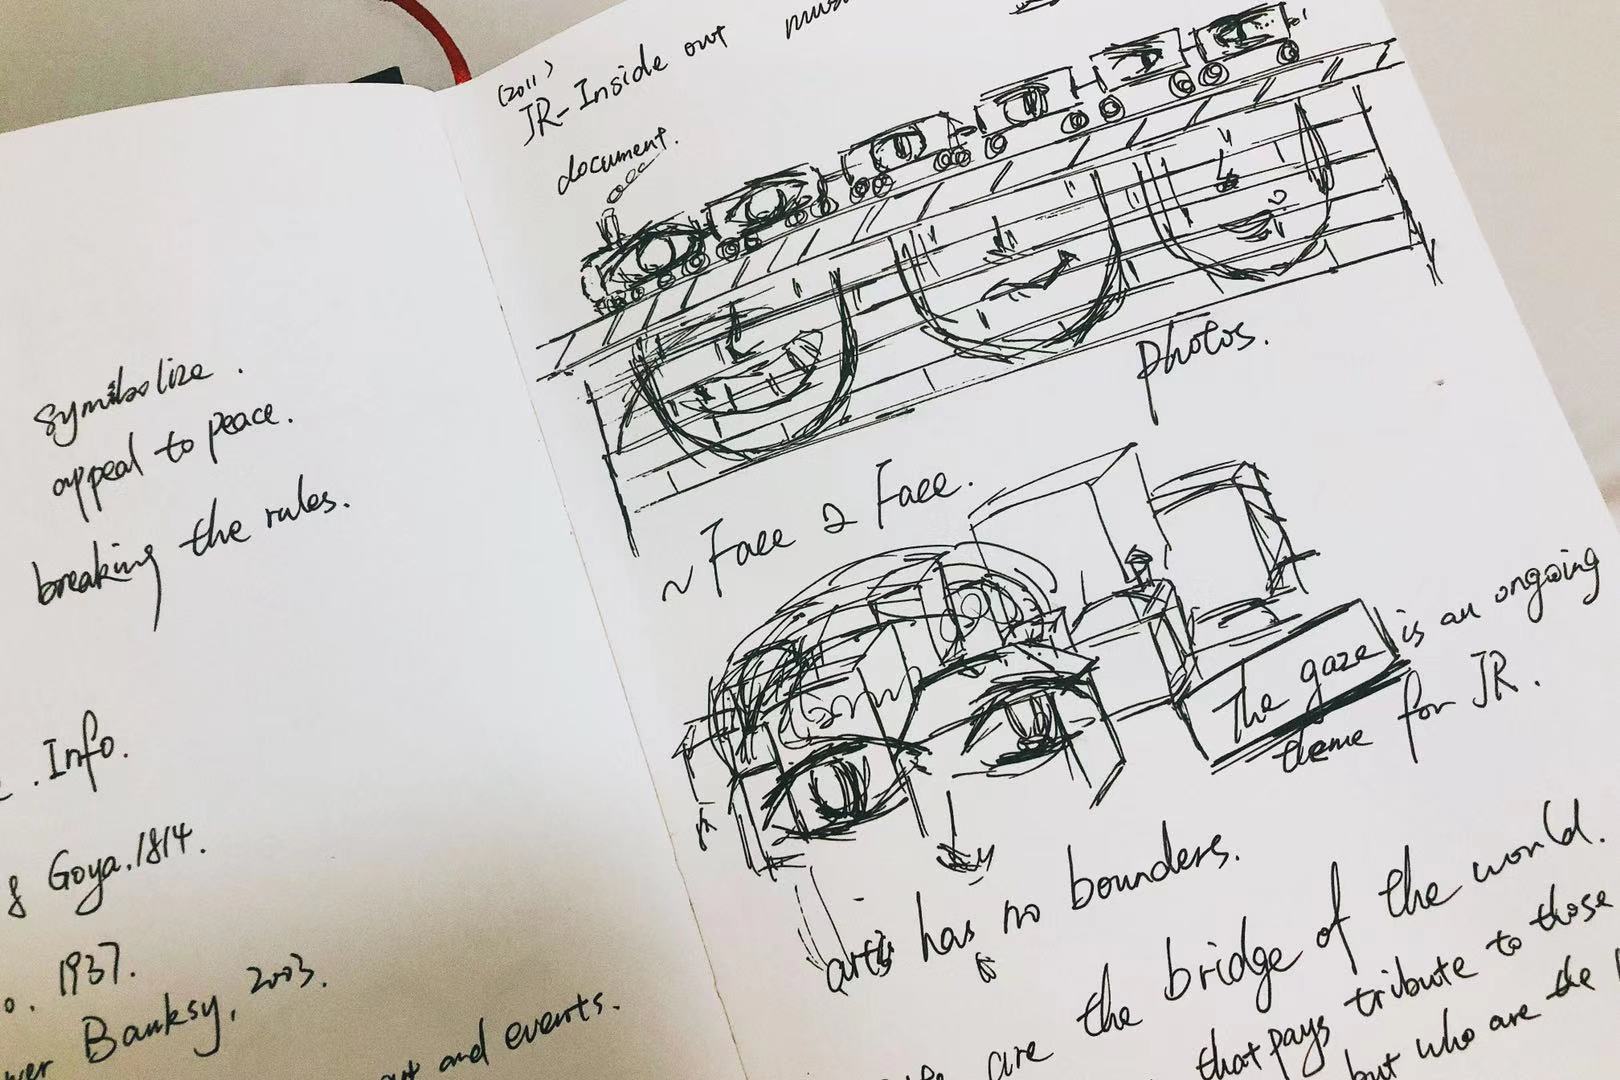 symbolize.
appeal to peace.
breaking the rules.
. Info.
& Goya. 1814.
o. 1937.
wer Banksy, 2003.
and events.
(2011)
JR-Inside out
document.
photos.
~ Face 2 Face.
The gaze is an ongoing
theme for JR.
arts has no bounders.
are the bridge of the world.
that pays tribute to those
but who are the